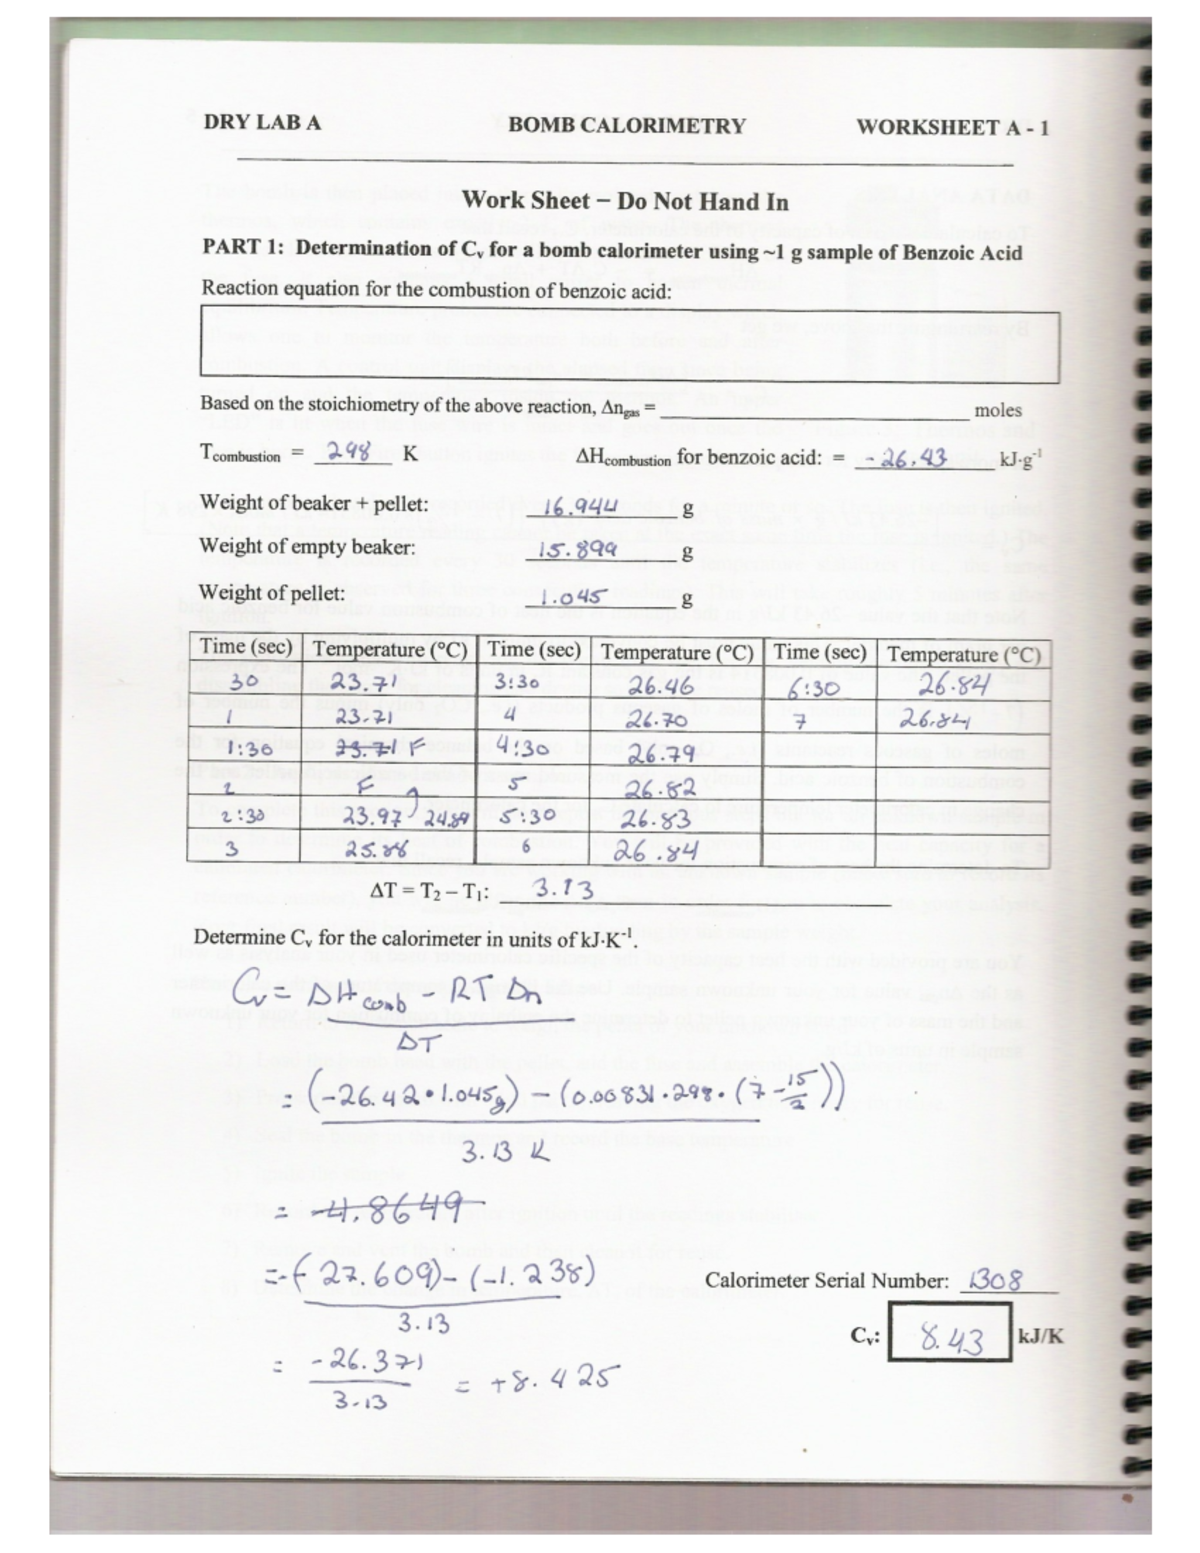 DRY LAB A BOMB CALORIMETRY WORKSHEET A - 1
Work Sheet – Do Not Hand In
PART 1: Determination of Cv for a bomb calorimeter using ~1 g sample of Benzoic Acid
Reaction equation for the combustion of benzoic acid:
Based on the stoichiometry of the above reaction, Δngas = moles
Tcombustion = 298 K ΔHcombustion for benzoic acid: = -26.43 kJ·g-1
Weight of beaker + pellet: 16.944 g
Weight of empty beaker: 15.899 g
Weight of pellet: 1.045 g
Time (sec) Temperature (°C) Time (sec) Temperature (°C) Time (sec) Temperature (°C)
30 23.71 3:30 26.46 6:30 26.84
1 23.71 4 26.70 7 26.84
1:30 23.71 F 4:30 26.79
2 F 5 26.82
2:30 23.97 24.89 5:30 26.83
3 25.88 6 26.84
ΔT = T2 – T1: 3.13
Determine Cv for the calorimeter in units of kJ·K-1.
Cv = ΔHcomb - RT Dn
ΔT
= (-26.42 • 1.045g) - (0.00831 • 298 • (7 - 15/2))
3.13 K
= -4.8649
=-(27.609) - (-1.238)
3.13
= -26.371 = +8.425
3.13
Calorimeter Serial Number: 1308
Cv: 8.43 kJ/K